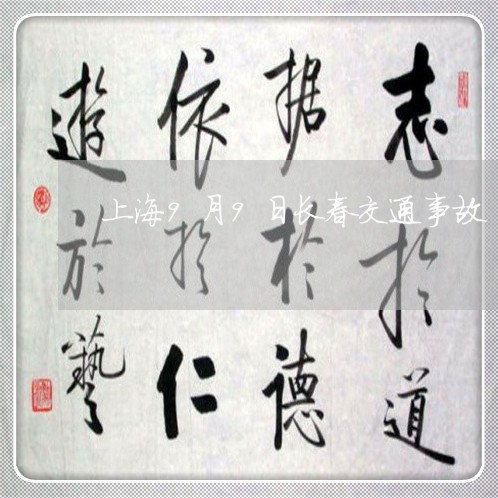 志於道
据於德
依於仁
遊於藝
上海9月9日长春交通事故